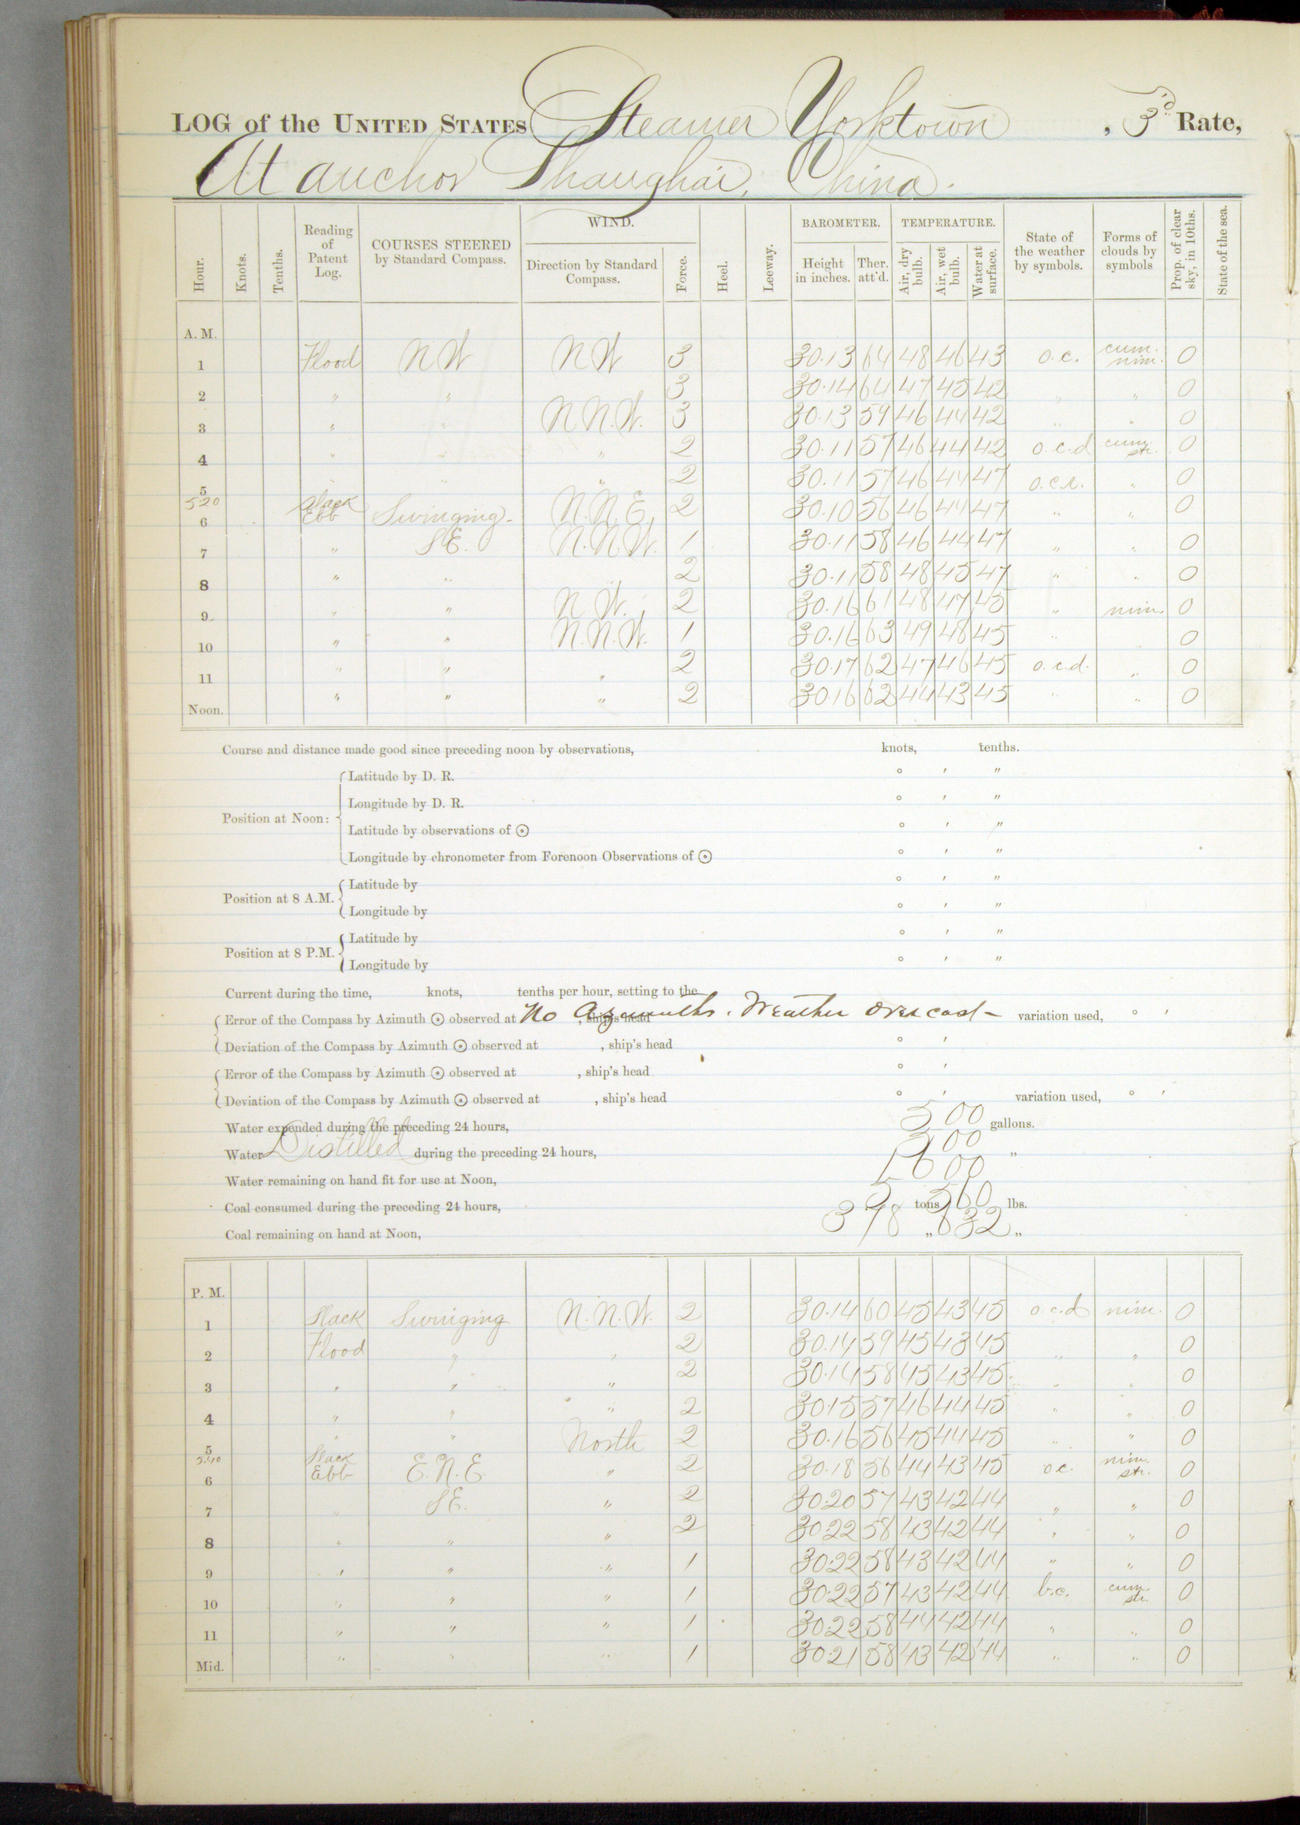 LOG of the UNITED STATES Steamer Yorktown, 3d Rate,
At anchor Shanghai, China.
Hour. Knots. Tenths. Reading of Patent Log. COURSES STEERED by Standard Compass. WIND. Direction by Standard Compass. Force. Heel. Leeway. BAROMETER. Height in inches. Ther. att'd. TEMPERATURE. Air, dry bulb. Air, wet bulb. Water at surface. State of the weather by symbols. Forms of clouds by symbols Prop. of clear sky, in 10ths. State of the sea.
A. M.
1 Flood NW NW 3 30.13 64 48 46 43 o.c. cum. nim. 0
2 " " 3 30.14 64 47 45 42 " " 0
3 " " N.N.W. 3 30.13 59 46 44 42 " " 0
4 " " " 2 30.11 57 46 44 42 o.c.d cum. str. 0
5 " " 2 30.11 57 46 44 47 o.c.r. " 0
5.20 Slack
6 Ebb Swinging- N.N.E. 2 30.10 56 46 44 47 " " 0
7 " SE. N.N.W. 1 30.11 58 46 44 47 " " 0
8 " " " 2 30.11 58 48 45 47 " " 0
9 " " N.W. 2 30.16 61 48 47 45 " nim. 0
10 " " N.N.W. 1 30.16 63 49 48 45 " 0
11 " " " 2 30.17 62 47 46 45 o.c.d. " 0
Noon. " " " 2 30.16 62 44 43 45 " " 0
Course and distance made good since preceding noon by observations, knots, tenths.
Position at Noon: Latitude by D. R. ° ′ ″
Longitude by D. R. ° ′ ″
Latitude by observations of ☉ ° ′ ″
Longitude by chronometer from Forenoon Observations of ☉ ° ′ ″
Position at 8 A.M. Latitude by ° ′ ″
Longitude by ° ′ ″
Position at 8 P.M. Latitude by ° ′ ″
Longitude by ° ′ ″
Current during the time, knots, tenths per hour, setting to the
Error of the Compass by Azimuth ☉ observed at No Azimuths. Weather Overcast- , ship's head variation used, ° ′
Deviation of the Compass by Azimuth ☉ observed at , ship's head ° ′
Error of the Compass by Azimuth ☉ observed at , ship's head ° ′
Deviation of the Compass by Azimuth ☉ observed at , ship's head ° ′ variation used, ° ′
Water expended during the preceding 24 hours, 500 gallons.
Water Distilled during the preceding 24 hours, 500 "
Water remaining on hand fit for use at Noon, 1600
Coal consumed during the preceding 24 hours, 5 tons 560 lbs.
Coal remaining on hand at Noon, 378 " 632 "
P. M.
1 Slack Swinging N.N.W. 2 30.14 60 45 43 45 o.c.d nim. 0
2 Flood " " 2 30.14 59 45 43 45 " " 0
3 " " " 2 30.14 58 45 43 45 " " 0
4 " " " 2 30.15 57 46 44 45 " " 0
5 " " North 2 30.16 56 45 44 45 " " 0
5.40 Slack
6 Ebb E.N.E. " 2 30.18 56 44 43 45 o.c. nim. str. 0
7 " SE. " 2 30.20 57 43 42 44 " " 0
8 " " " 2 30.22 58 43 42 44 " " 0
9 " " " 1 30.22 58 43 42 44 " " 0
10 " " " 1 30.22 57 43 42 44 b.c. cum. str. 0
11 " " " 1 30.22 58 44 42 44 " " 0
Mid. " " " 1 30.21 58 43 42 44 " " 0